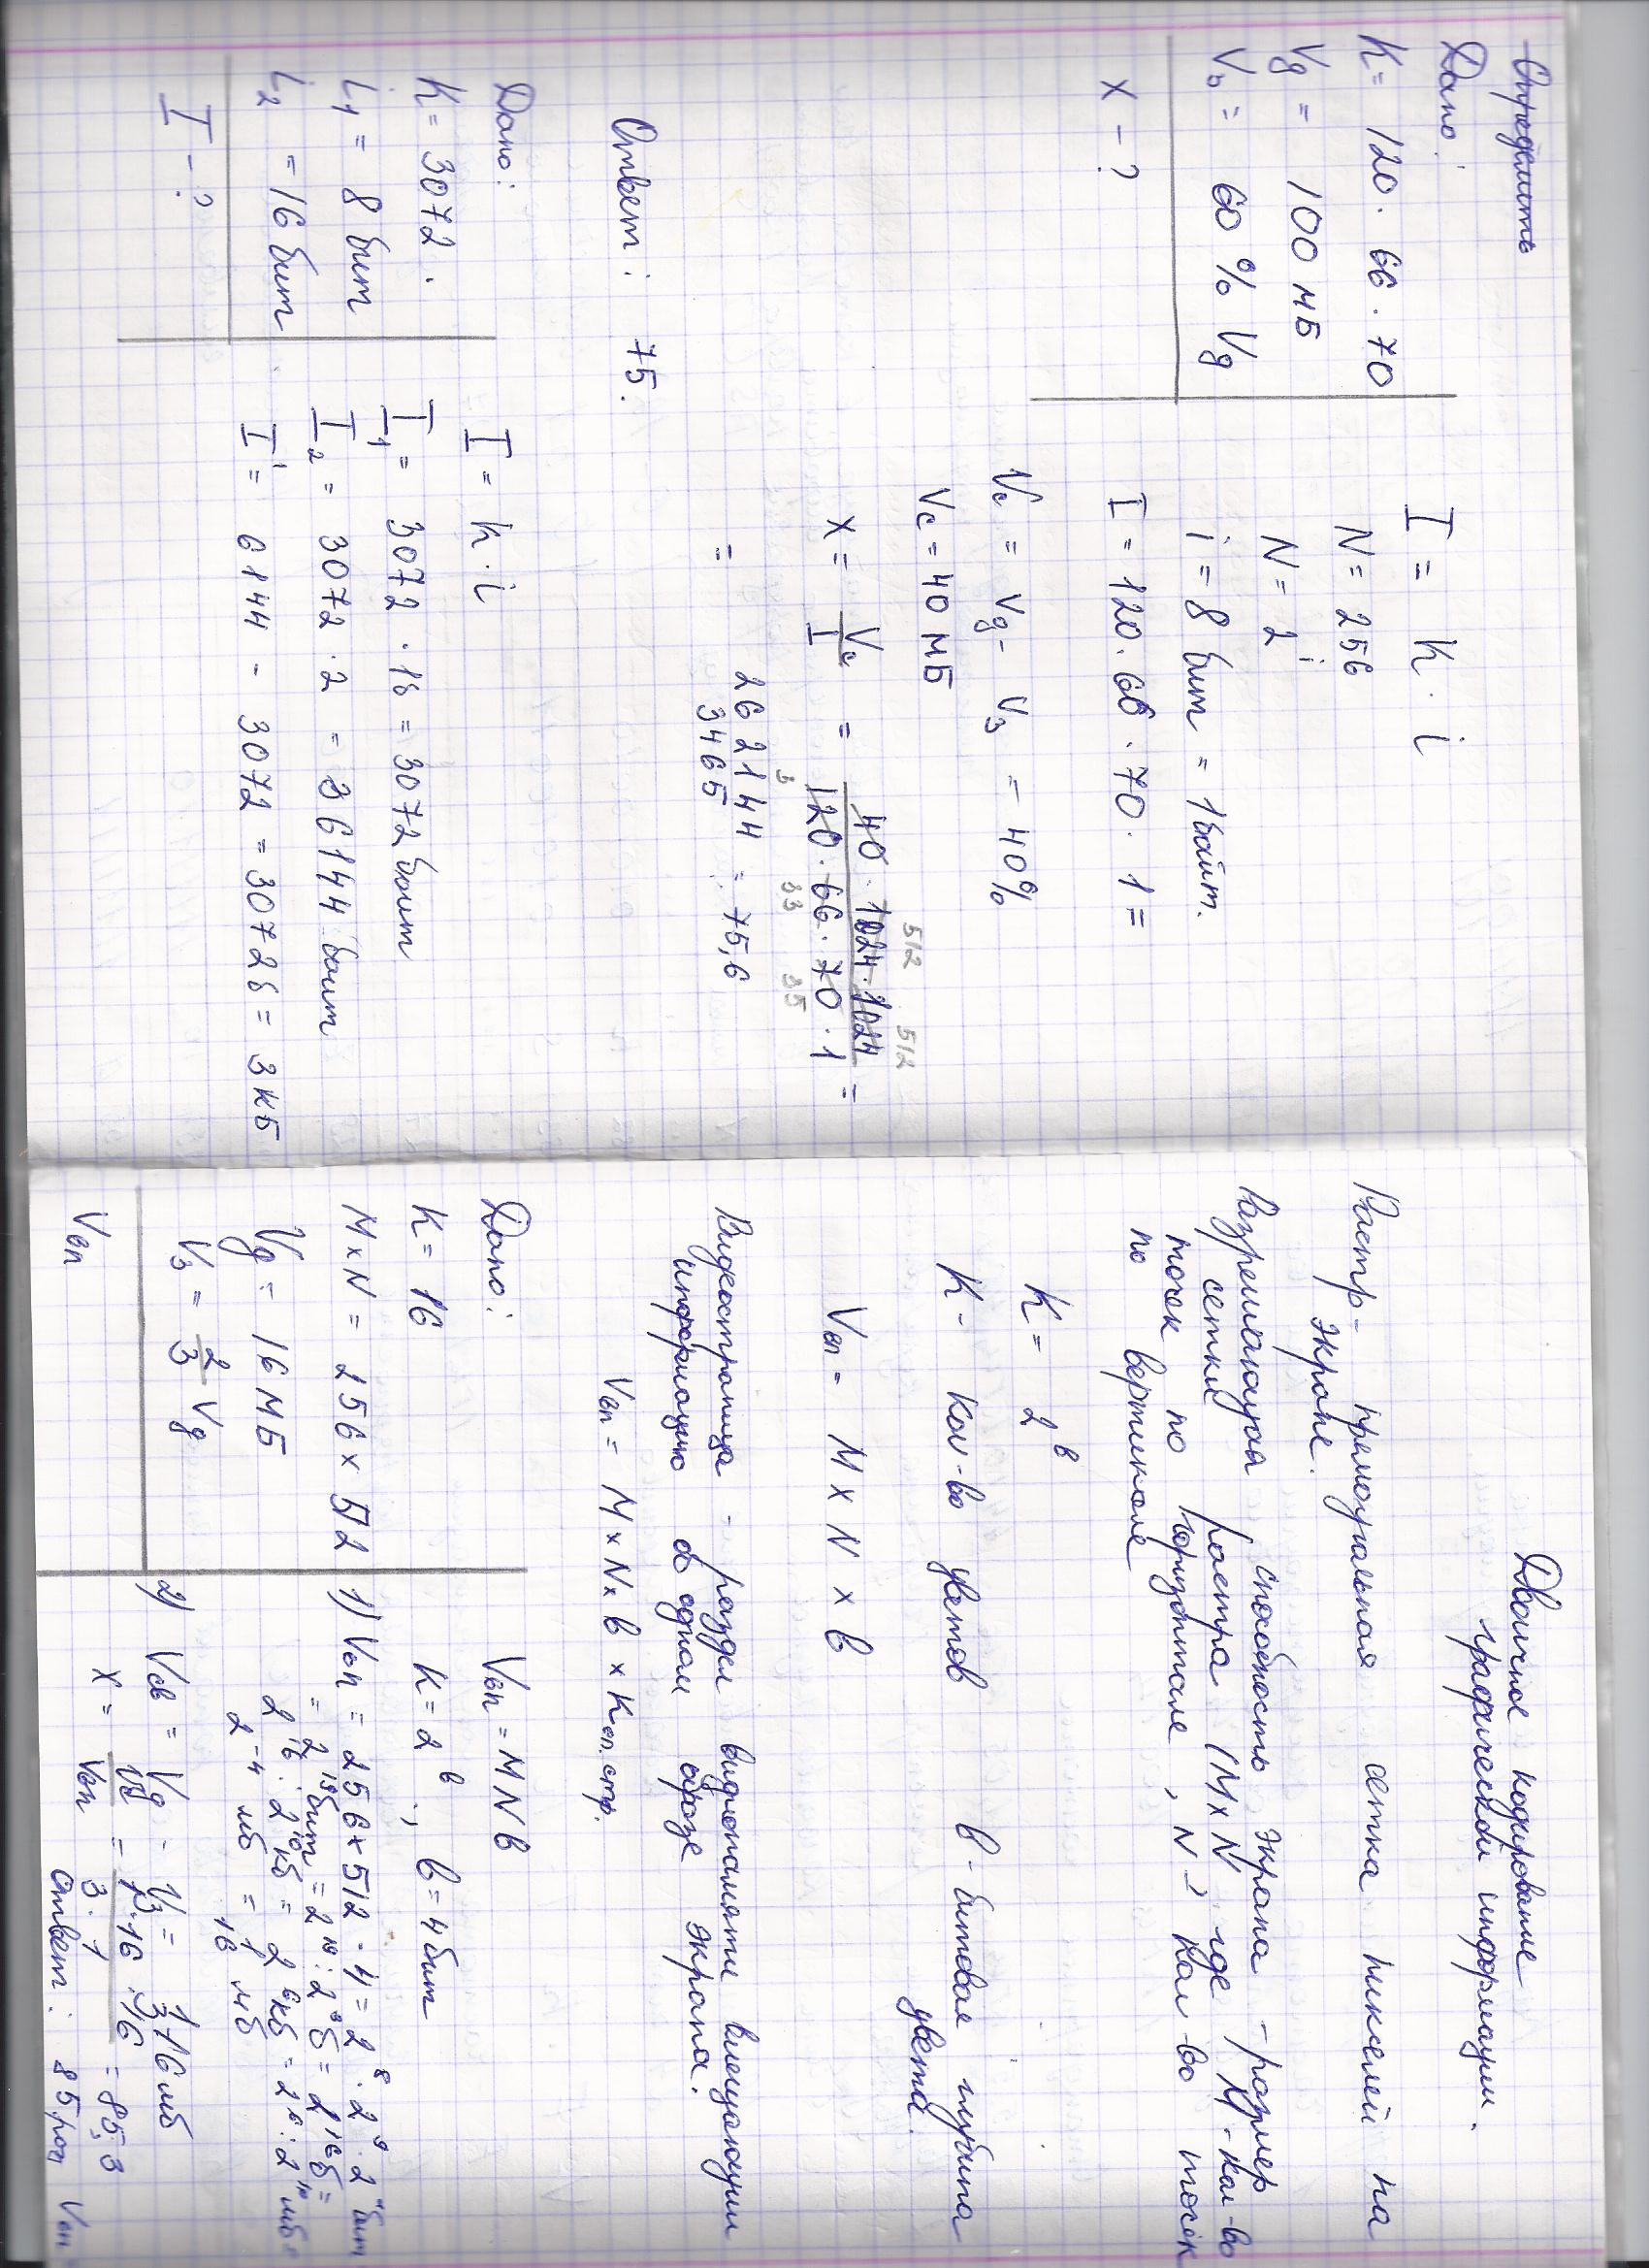 Определить
Дано:
K = 120 · 66 · 70
Vg = 100 мБ
Vз = 60 % Vg
x - ?
I = K · i
N = 256
N = 2^i
i = 8 бит = 1 байт.
I = 120 · 66 · 70 · 1 =
Vс = Vg - Vз = 40%
Vс = 40 мБ
x = Vс/I = 40 · 1024 · 1024 / 120 · 66 · 70 · 1 =
512 512
3 33 35
= 262144 / 3465 = 75,6
Ответ: 75.
Дано:
K = 3072.
i1 = 8 бит
i2 = 16 бит
I - ?
I = K · i
I1 = 3072 · 1б = 3072 байт
I2 = 3072 · 2 = 36144 байт
I' = 6144 - 3072 = 3072б = 3 кБ
Двоичное кодирование
графической информации.
Растр - прямоугольная сетка пикселей на
экране.
Разрешающая способность экрана - размер
сетки растра (M x N где M - кол-во
точек по горизонтале, N - кол-во точек
по вертикале
K = 2^в
K - кол-во цветов в - битовая глубина
цвета.
Vвп = M x N x в
Видеостраница - раздел видеопамяти вмещающий
информацию об одном образе экрана.
Vвп = M x N x в x Kол.стр.
Дано:
K = 16
M x N = 256 x 512
Vg = 16 МБ
Vз = 2/3 Vg
Vвп
Vвп = M N в
K = 2^в, в = 4 бит
1) Vвп = 256 x 512 · 4 = 2^8 · 2^9 · 2^2 бит
= 2^19 бит = 2^19 : 2^3 б = 2^16 б =
2^16 : 2^10 кб = 2^6 кб = 2^6 : 2^10 мб =
2^-4 мб = 1/16 мб
2) Vсв = Vg - Vз = 1/3 16 мб
x = Vсв/Vвп = 1 · 16 · 16 / 3 · 1 = 85,3
Ответ: 85 раз Vвп